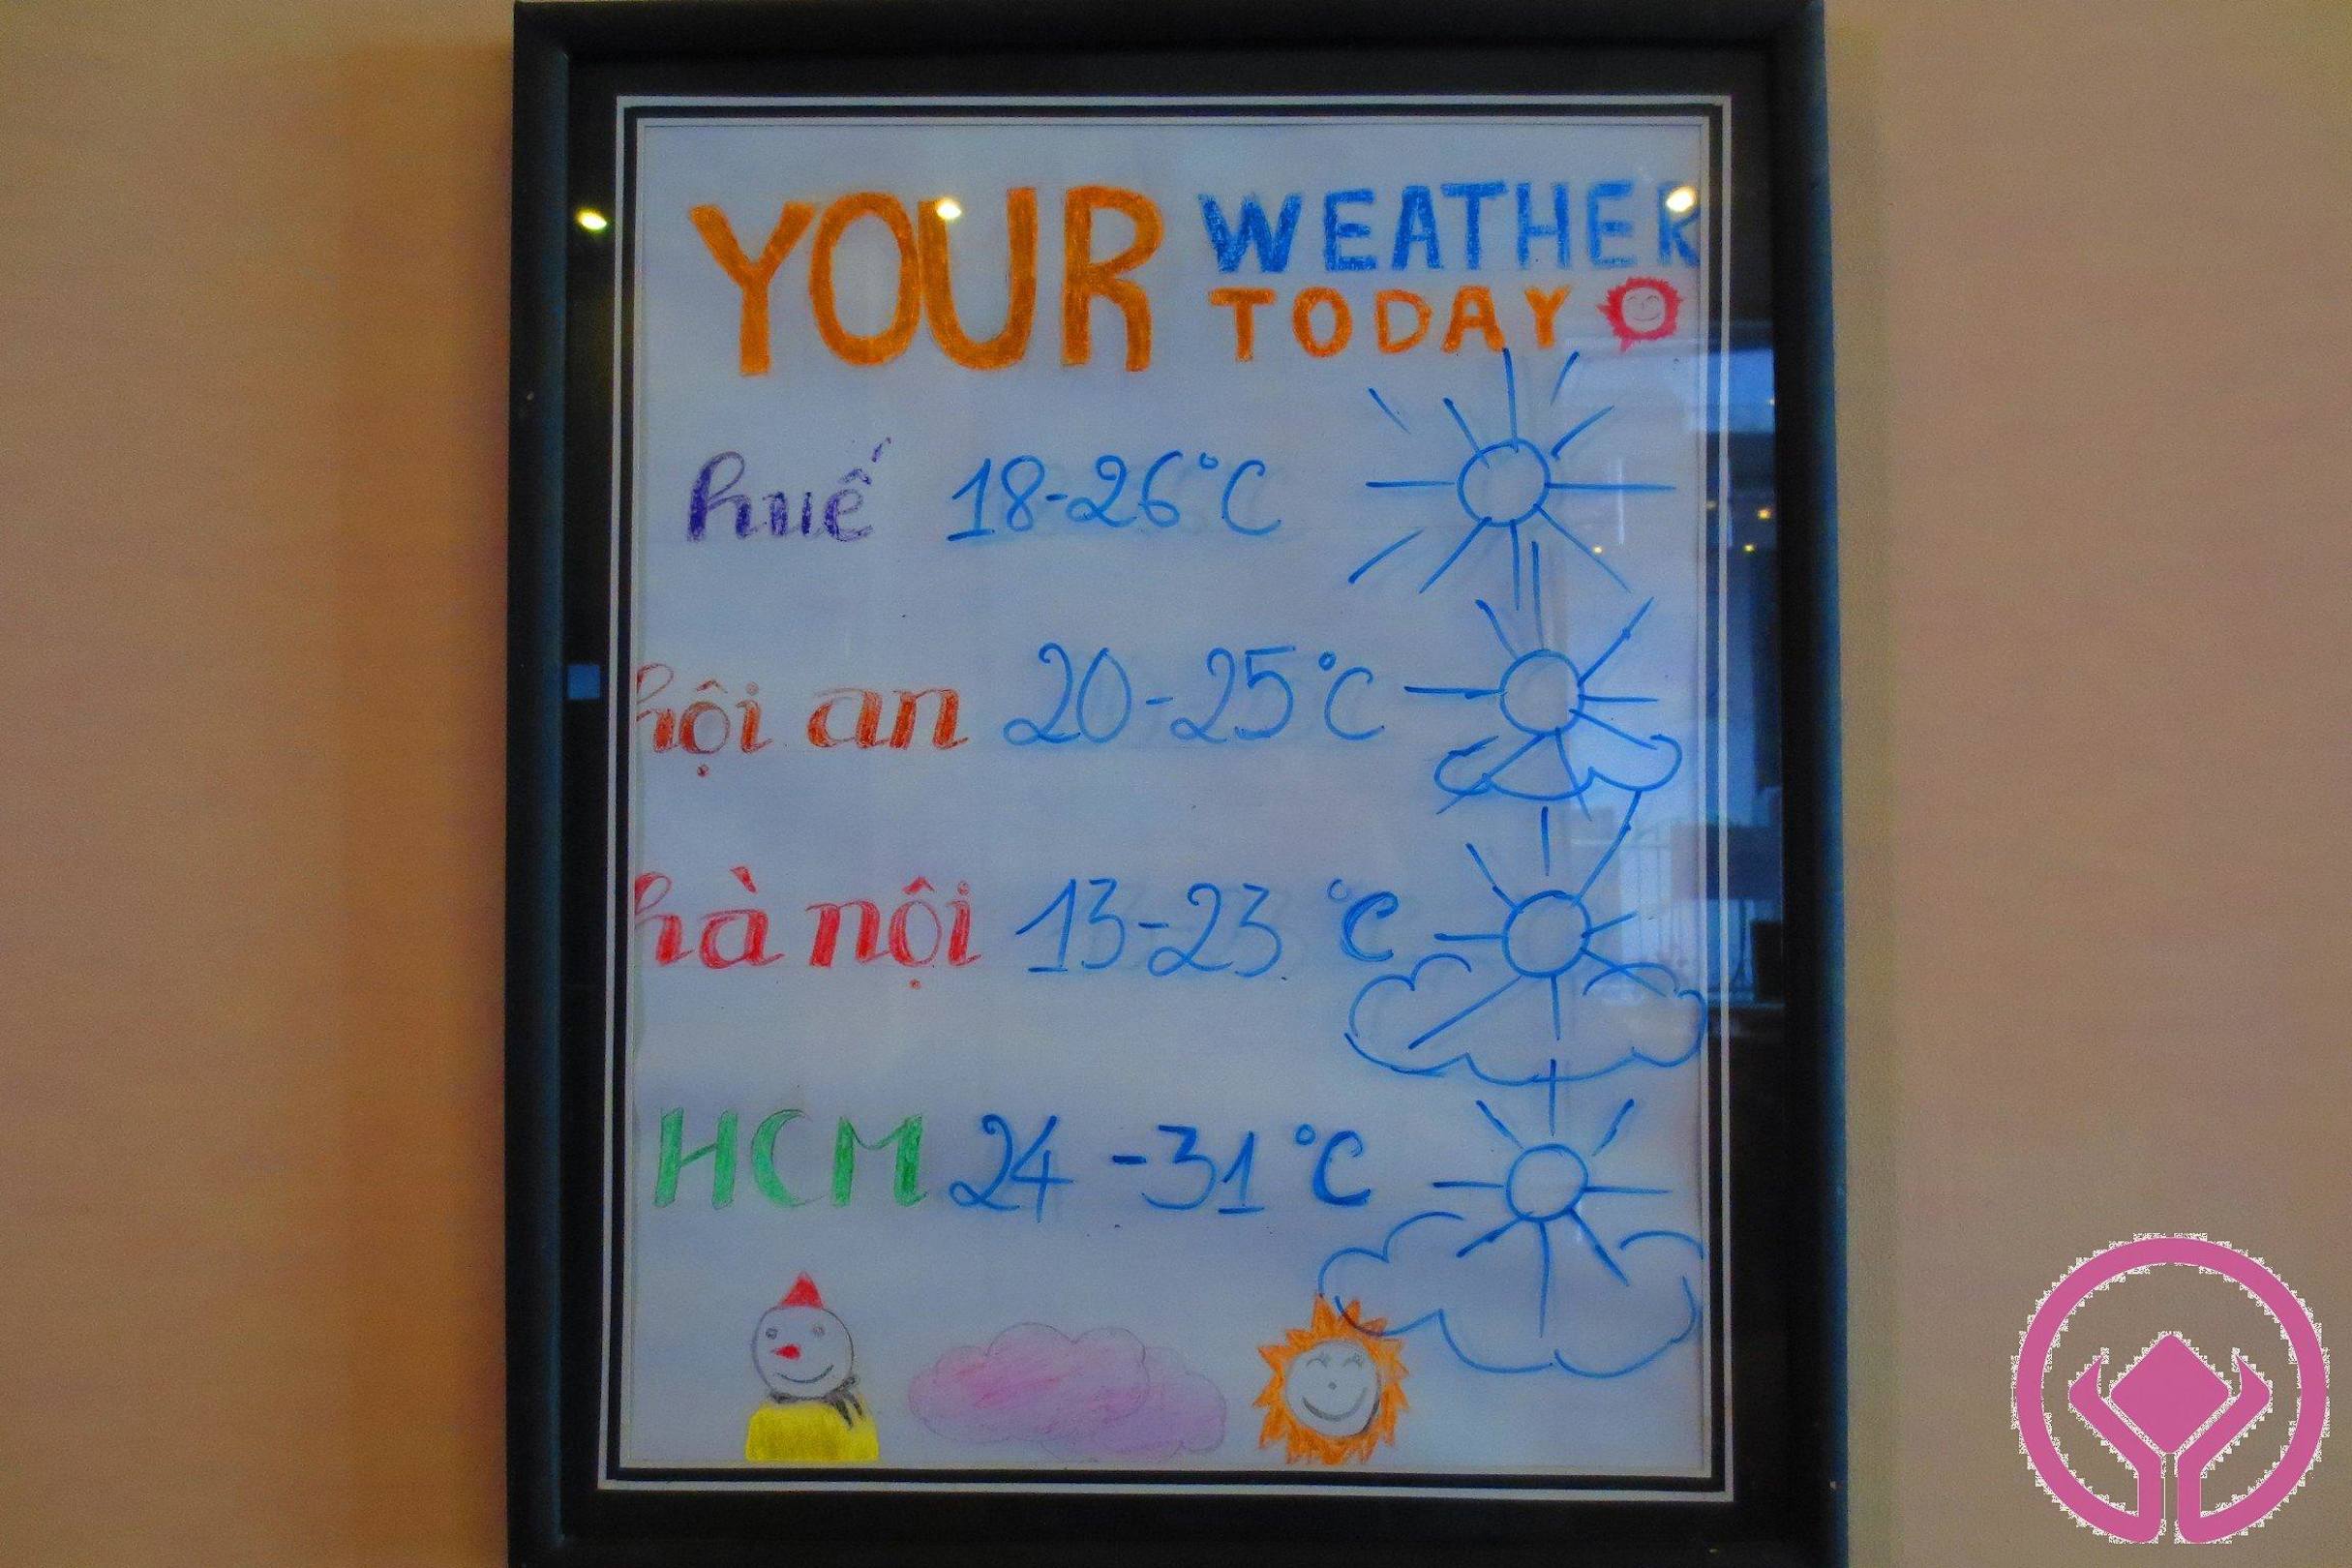 YOUR WEATHER
TODAY
huế 18-26°C
hội an 20-25°C
hà nội 13-23 °C
HCM 24-31°C